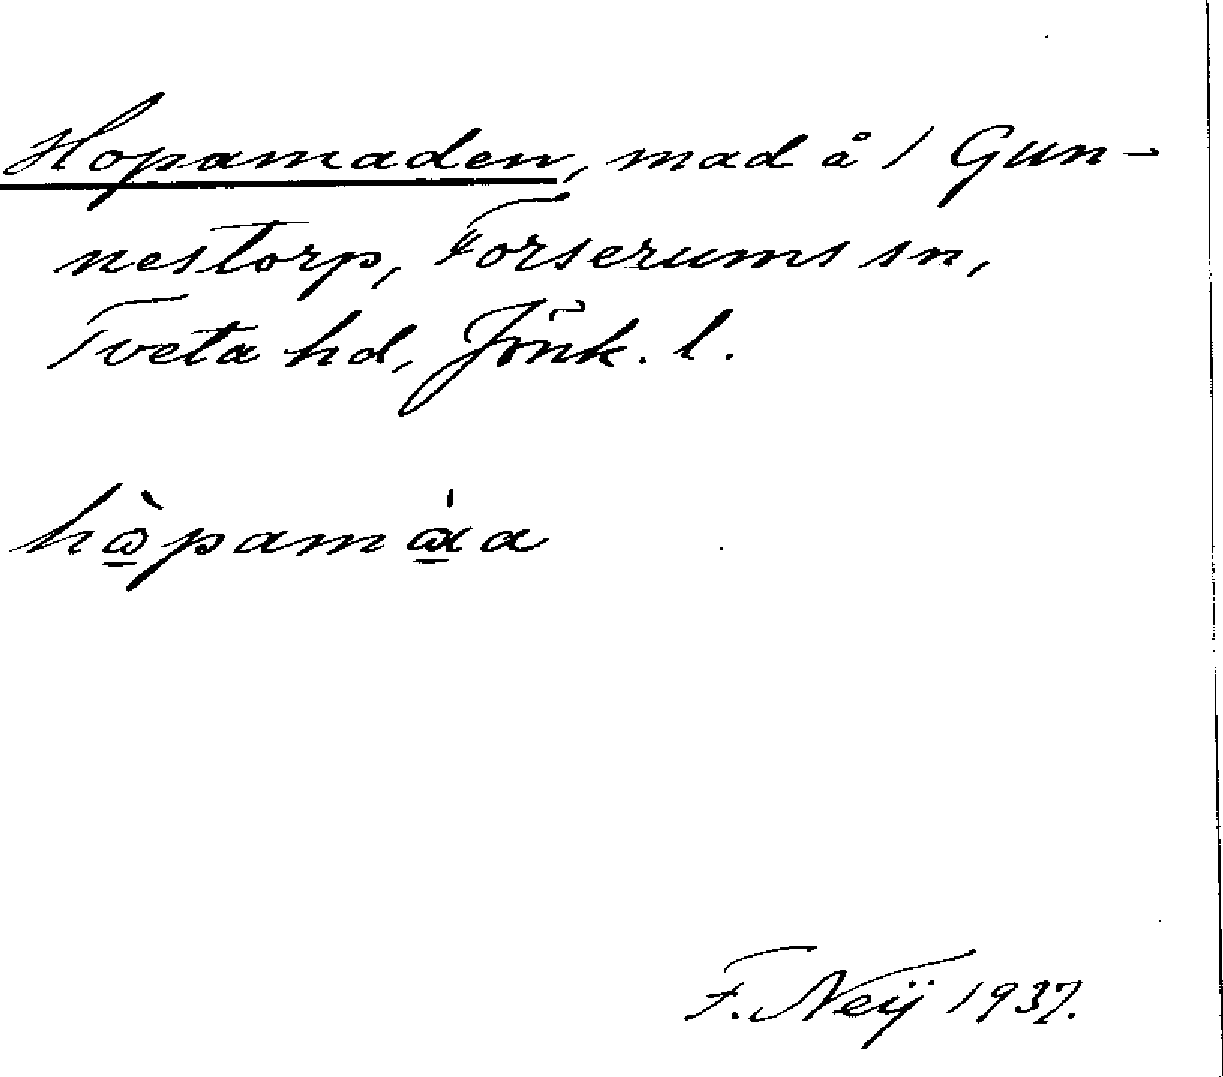 Hopamaden, mad å / Gun-
nestorp, Forserums sn,
Tveta hd, Jönk. l.
F. Neij 1937.